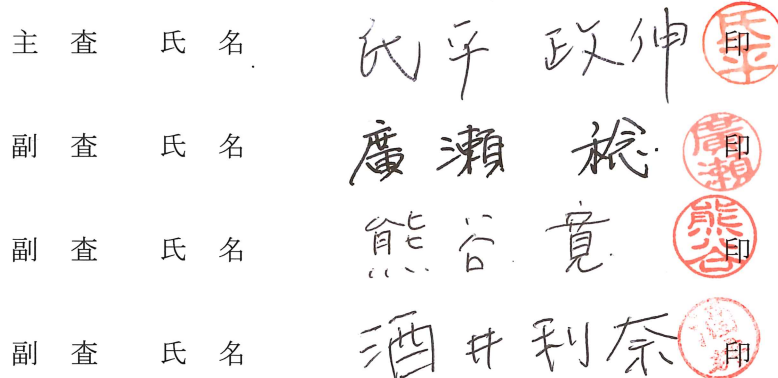 主 査 氏 名 氏平 政伸 印 氏平
副 査 氏 名 廣瀬 稔 印 廣瀬
副 査 氏 名 熊谷 寛 印 熊谷
副 査 氏 名 酒井利奈 印